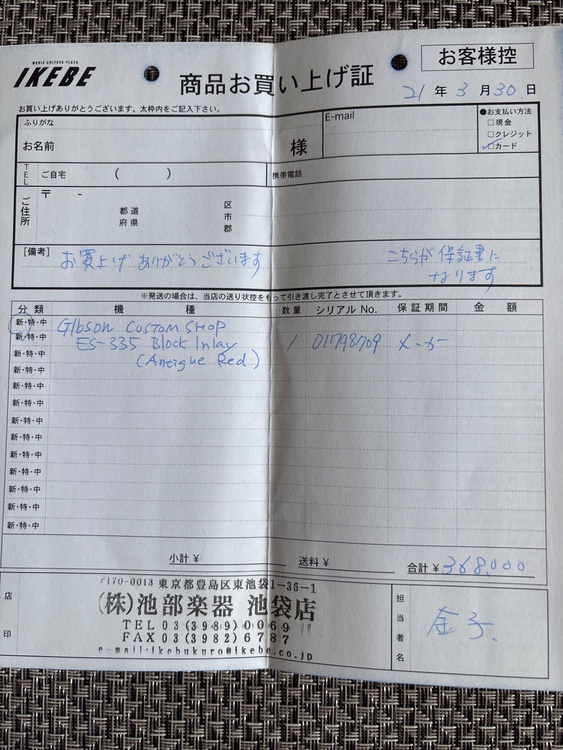 WORLD CULTURE PLAZA
IKEBE
商品お買い上げ証
お客様控
21 年 3 月 30 日
お買い上げありがとうございます。太枠内をご記入下さい。
ふりがな
お名前
様
E-mail
●お支払い方法
□現金
□クレジット
□カード
TEL ご自宅 ( )
携帯電話
ご住所
〒 -
都道
府県
区
市
郡
[備考] お買上げ ありがとうございます
こちらが保証書に
なります
※発送の場合は、当店の送り状控をもって引き渡し完了とさせて頂きます。
分類 機種 数量 シリアル No. 保証期間 金額
新・特・中 Gibson CUSTOM SHOP
新・特・中 ES-335 Block Inlay 1 01798709 メーカー
新・特・中 (Antique Red)
新・特・中
新・特・中
新・特・中
新・特・中
新・特・中
新・特・中
新・特・中
新・特・中
新・特・中
新・特・中
小計 ¥ 送料 ¥ 合計 ¥368,000
店印
〒170-0013 東京都豊島区東池袋1-36-1
(株)池部楽器 池袋店
TEL 03(3989)0069
FAX 03(3982)6787
e-mail:ikebukuro@ikebe.co.jp
担当者名
金子